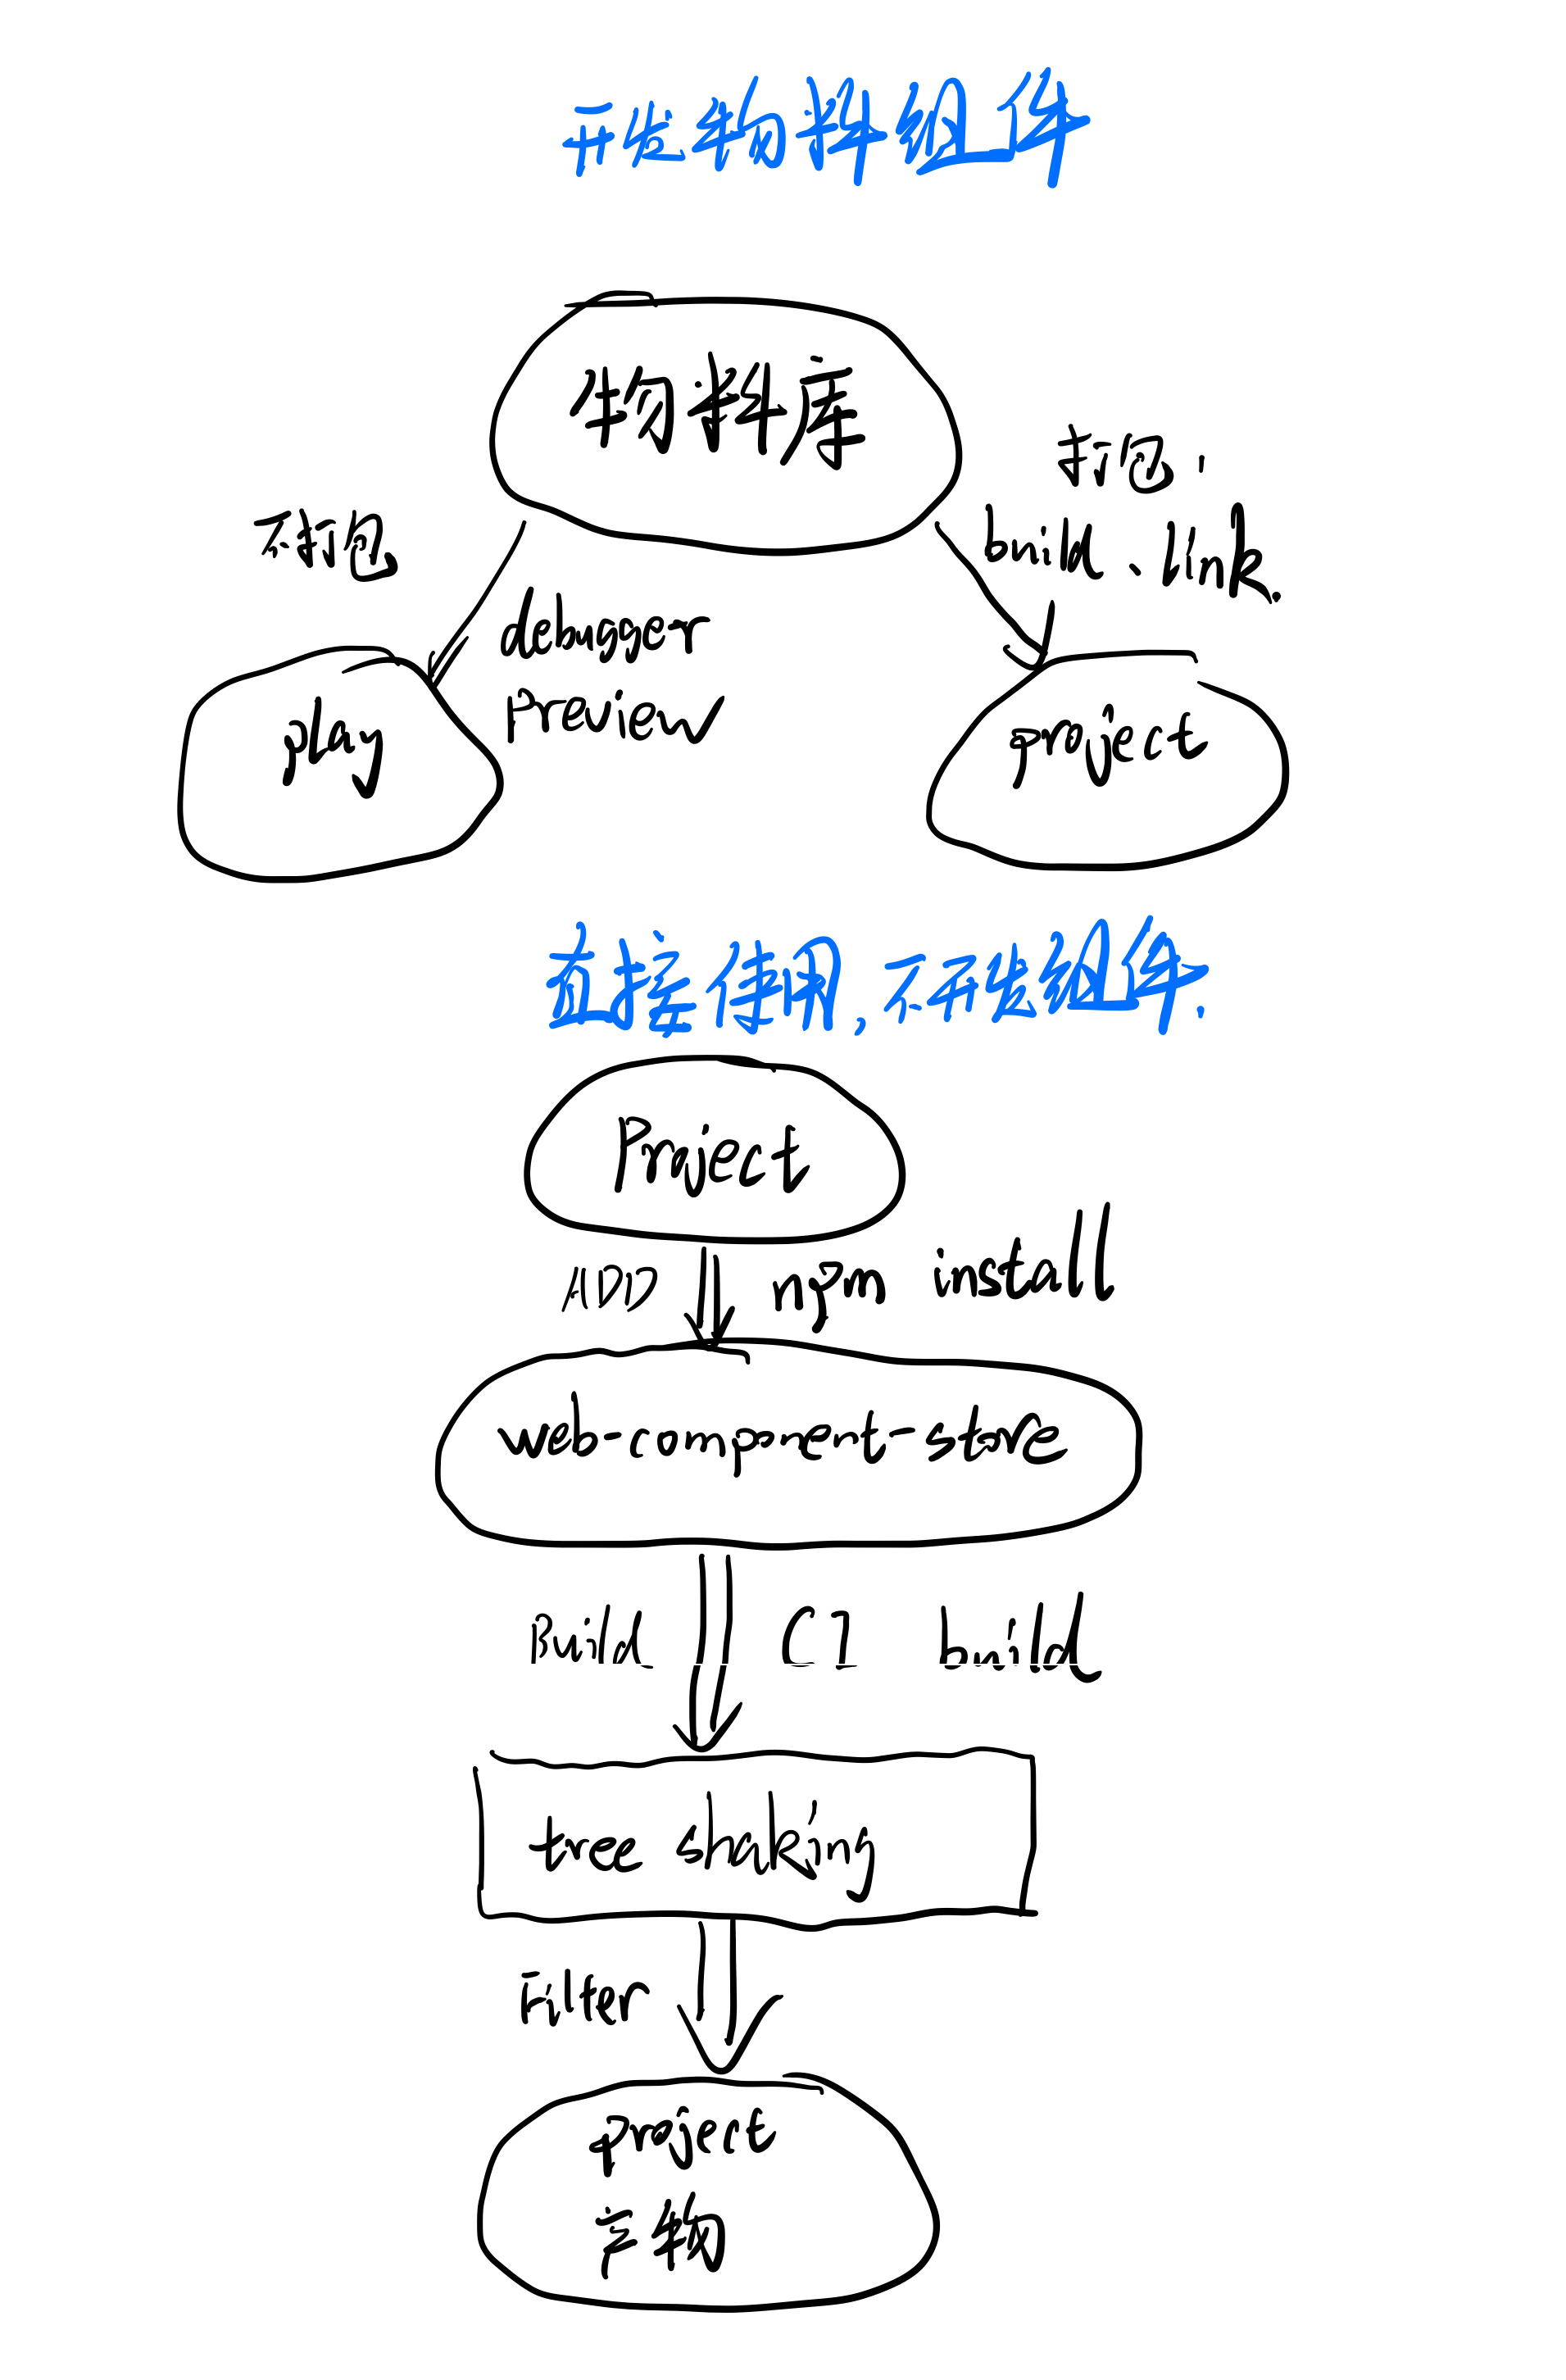 开发物料组件
物料库
打包:
build、link.
不打包
debugger
Preview
play
project
直接使用,不开发组件.
Project
ADD
npm install
web-component-store
Build
CI build
tree shaking
Filter
project
产物